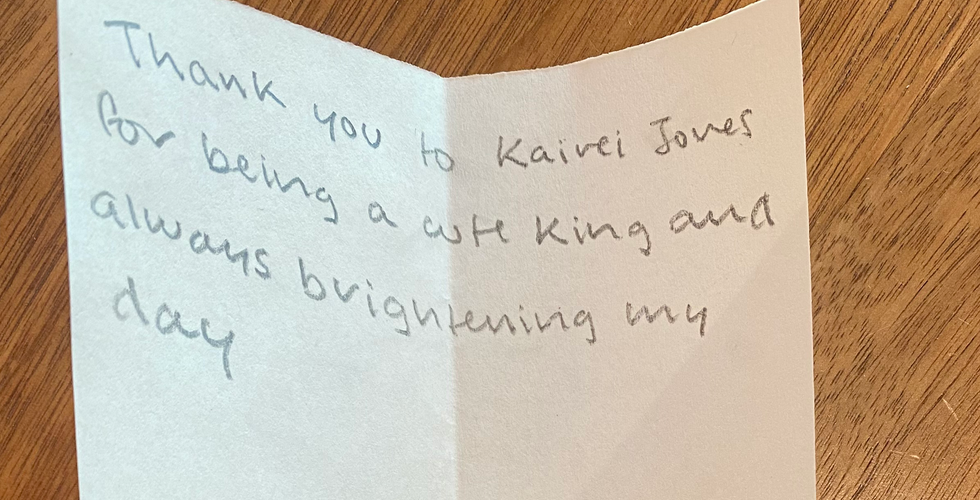 Thank you to Kairei Jones
for being a cute king and
always brightening my
day